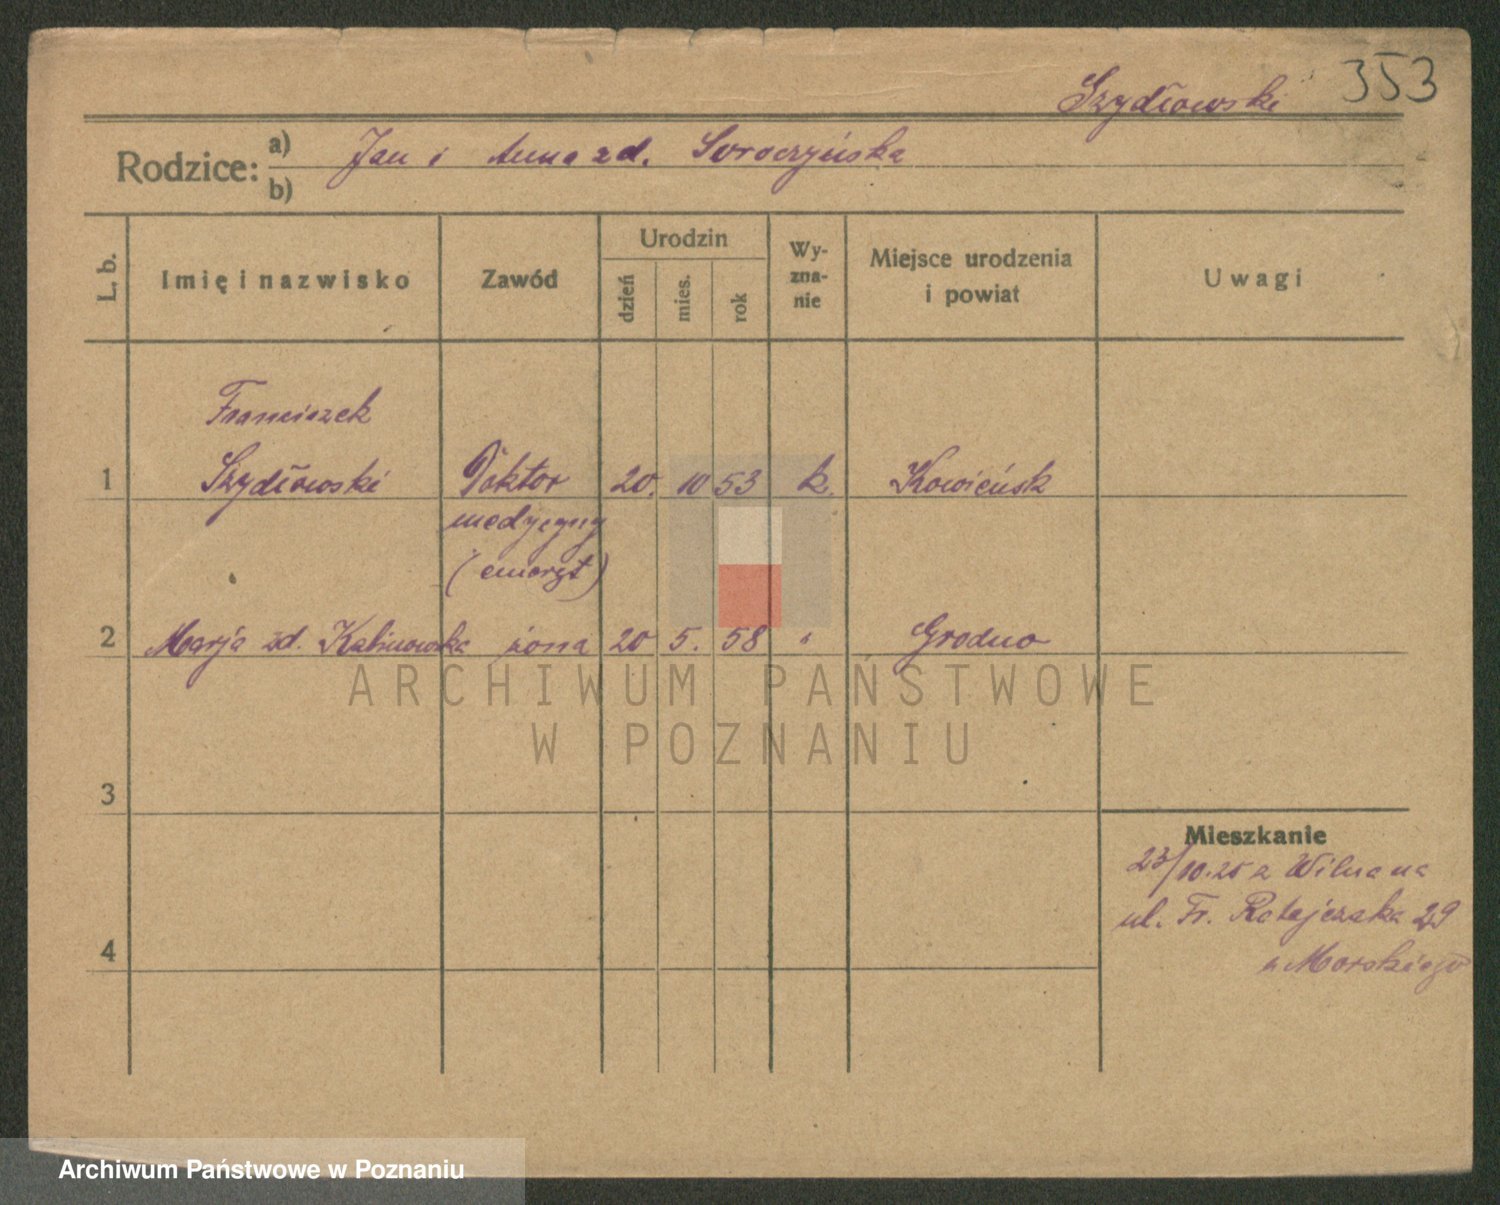 353
Szydłowski
Rodzice: a) Jan i Anna zd. Soroczyńska
b)
L. b.
Imię i nazwisko
Zawód
Urodzin
dzień
mies.
rok
Wy-
zna-
nie
Miejsce urodzenia
i powiat
Uwagi
Franciszek
1 Szydłowski Doktor 20. 10 53 k. Kowieńsk
medycyny
(emeryt)
2 Marja zd. Kalinowska żona 20 5. 58 " Grodno
ARCHIWUM PAŃSTWOWE
W POZNANIU
3
Mieszkanie
23/10.25 z Wilna na
ul. Fr. Ratajczaka 29
u Morskiego
4
Archiwum Państwowe w Poznaniu